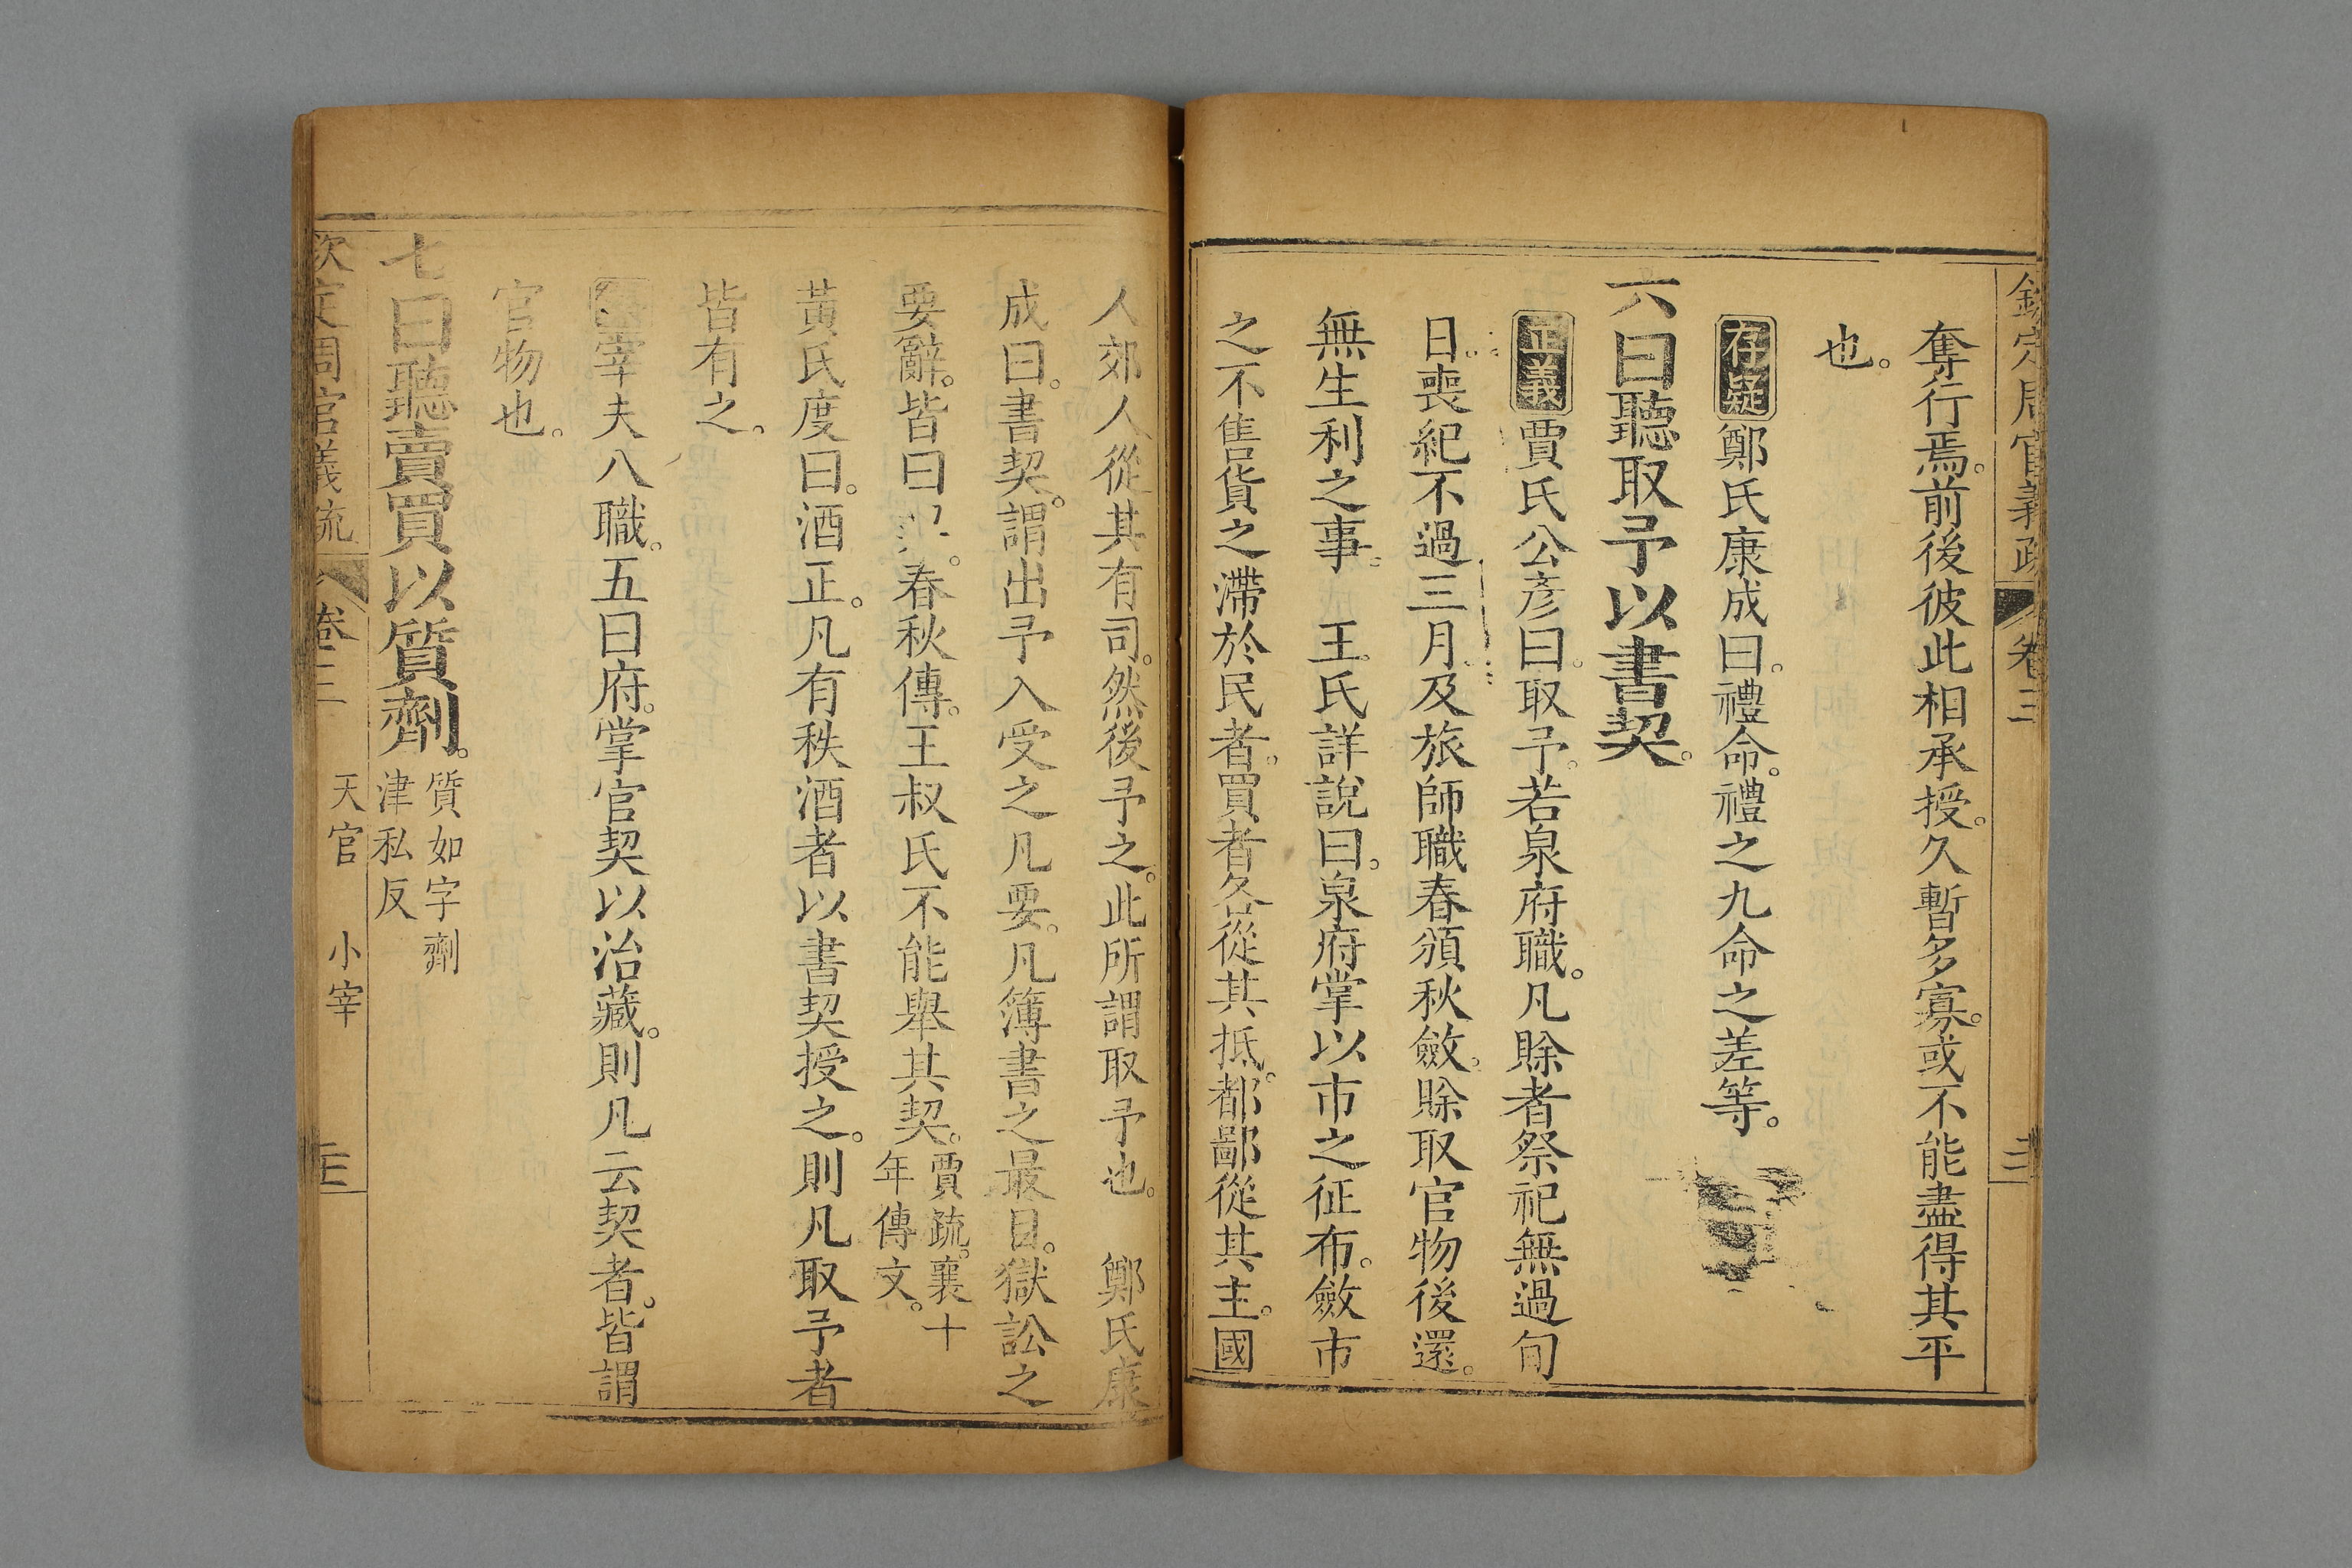 欽定周官義疏 卷三
奪行焉。前後彼此相承授。久暫多寡。或不能盡得其平
也。
存疑 鄭氏康成曰。禮命。禮之九命之差等。
六曰聽取予以書契。
正義 賈氏公彥曰。取予。若泉府職。凡賒者祭祀無過旬
日。喪紀不過三月。及旅師職春頒秋斂。賒取官物後還。
無生利之事。 王氏詳說曰。泉府掌以市之征布。斂市
之不售貨之滯於民者。買者各從其抵。都鄙從其主。國
人郊人從其有司。然後予之。此所謂取予也。 鄭氏康
成曰。書契。謂出予入受之凡要。凡簿書之最目。獄訟之
要辭。皆曰 。春秋傳。王叔氏不能舉其契。
賈疏。襄十
年傳文。
黃氏度曰。酒正。凡有秩酒者以書契授之。則凡取予者
皆有之。
宰夫八職。五曰府。掌官契以治藏。則凡云契者。皆謂
官物也。
七曰聽賣買以質劑。
質如字劑
津私反
欽定周官義疏 卷三 天官 小宰